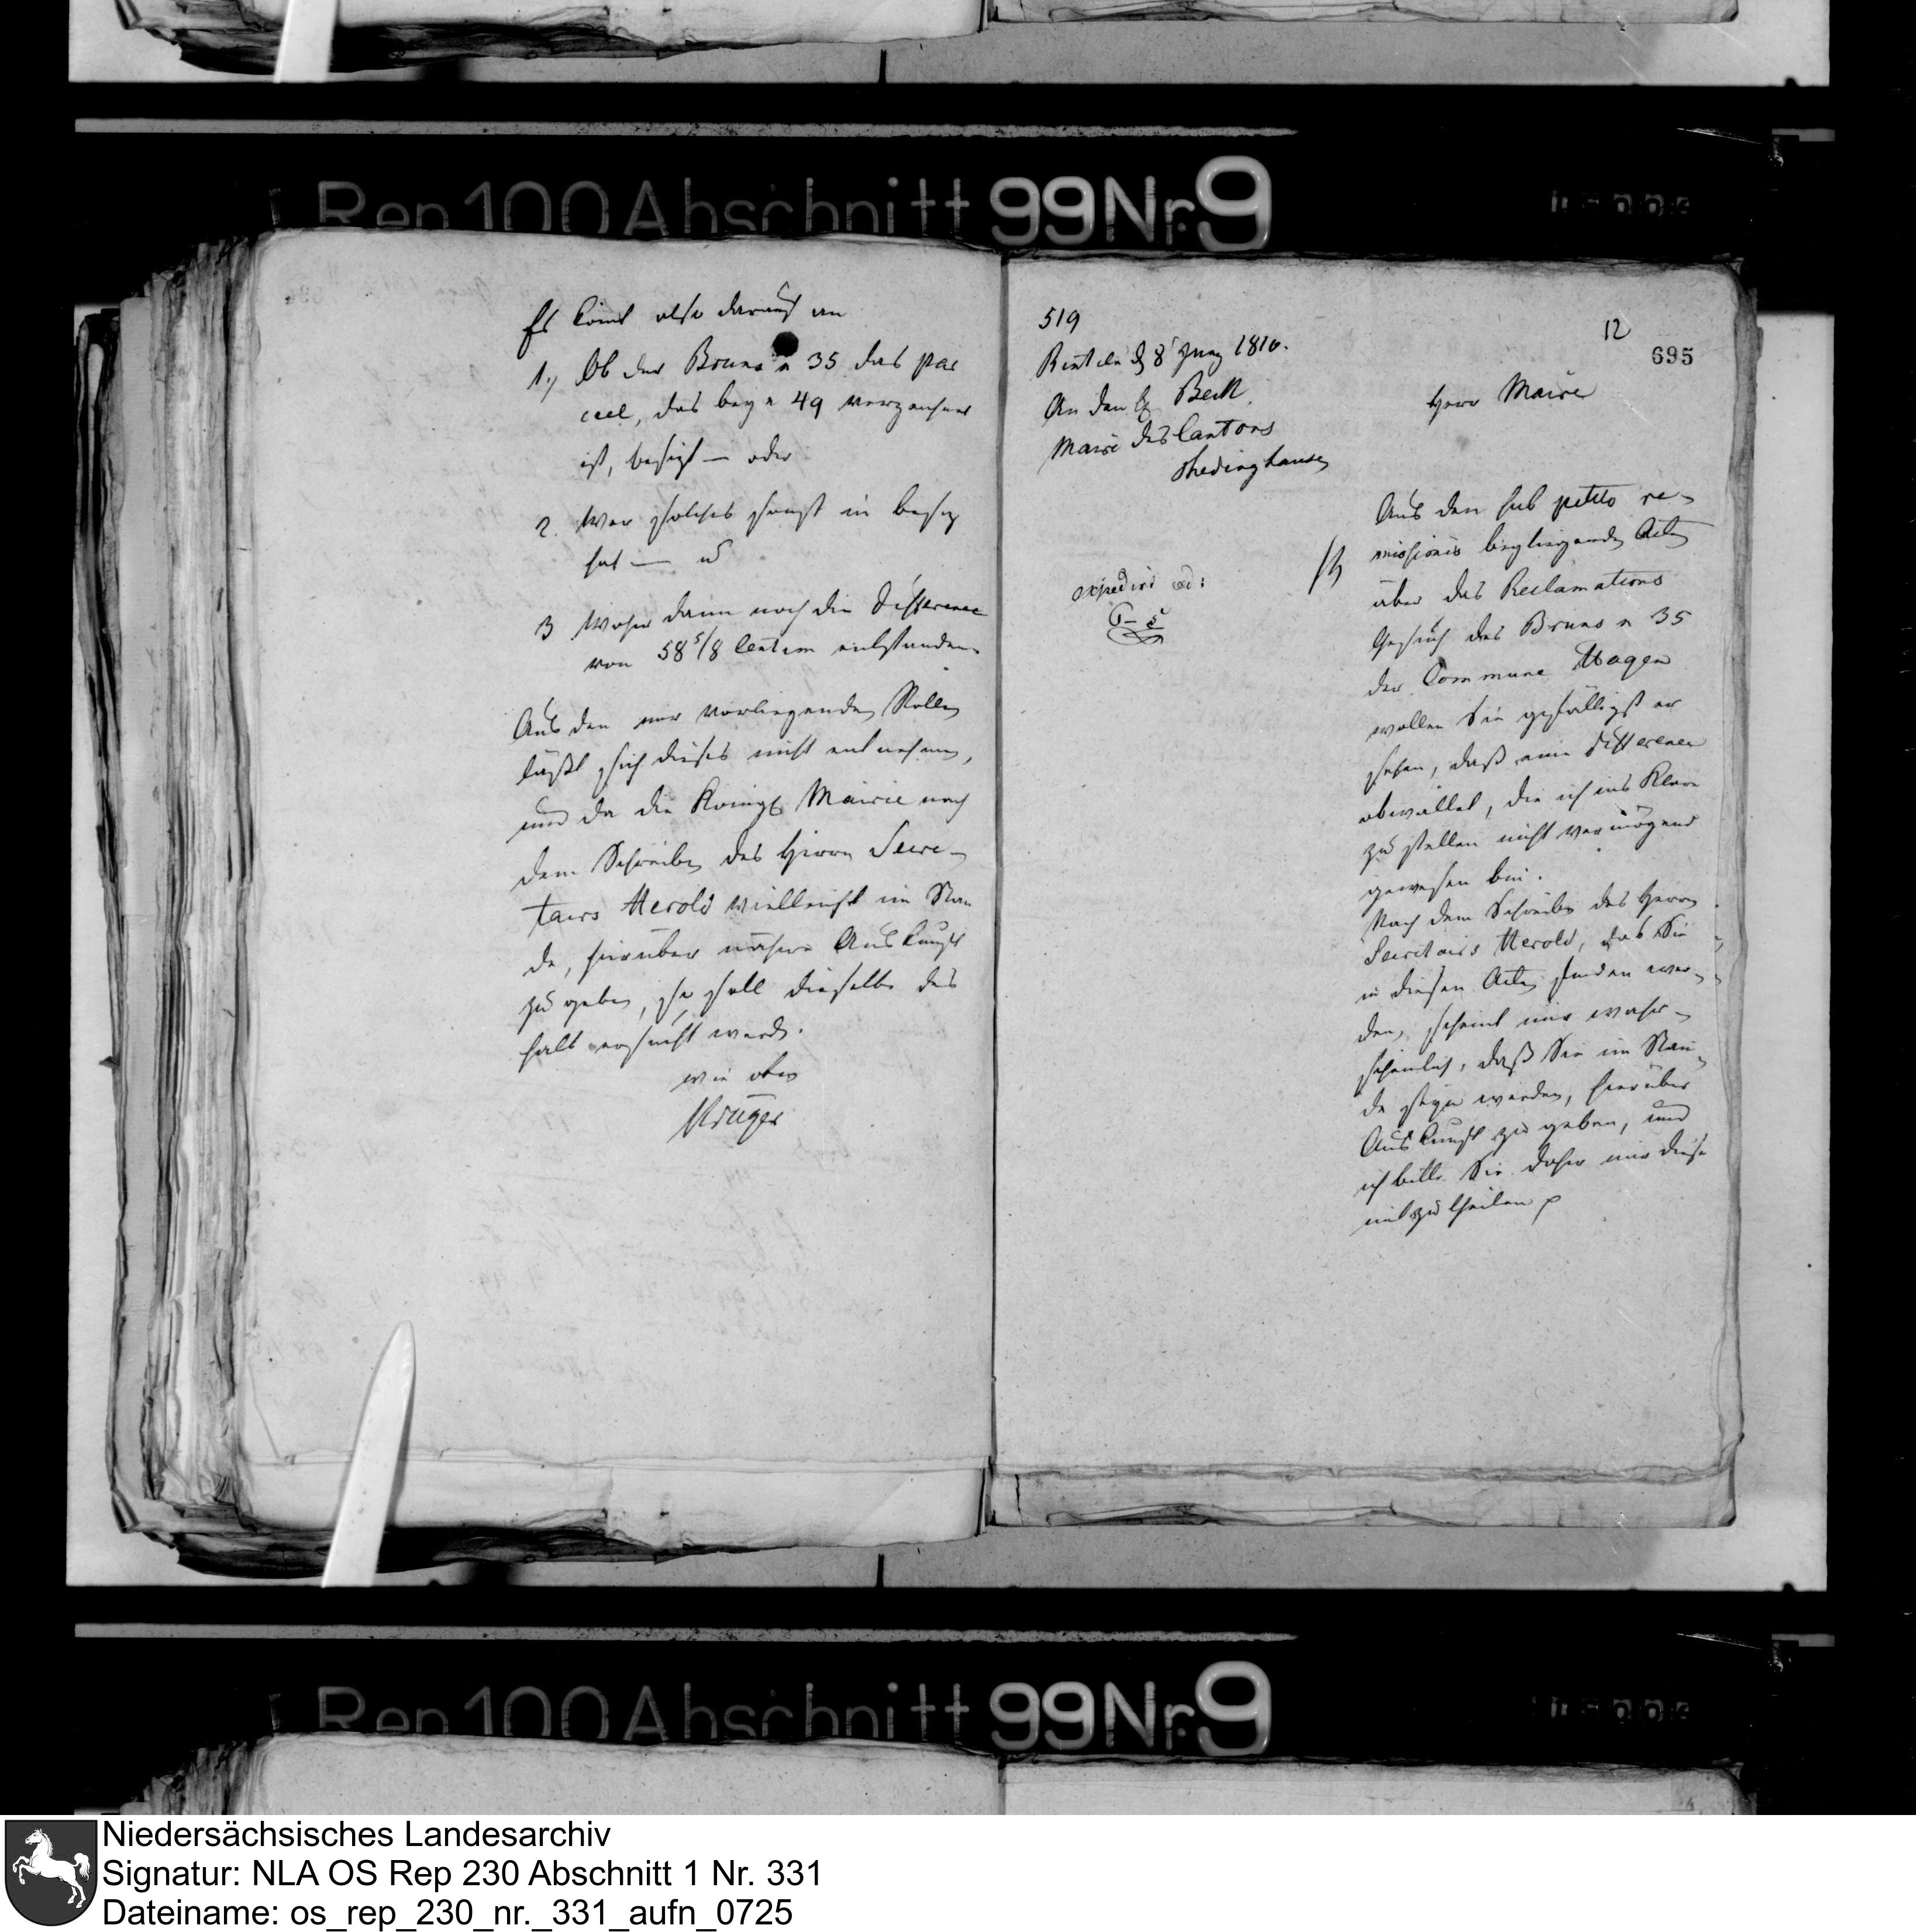 Rep 100 Abschnitt 99 Nr 9
Es kömt also darauf an
1., Ob der Bruns n 35 das par
ceel, das bey n 49 verzeichnet
ist, besizt — oder
2. Wer solches sonst in besiz
hat — u
3 Woher dann noch die Differenee
von 58 5/8 Centim entstanden
Aus den mir vorliegenden Rollen
läßt sich dieses nicht entnehmen,
und da die Königl Mairie nach
dem Schreiben des Herrn Secre-
tairs Herold vielleicht im Stan
de, hierüber nähere Auskunft
zu geben, so soll dieselbe des
halb ersucht werden.
wie oben
Krüger
519
Rinteln d 8 Juny 1810.
An den H Beck
Maire des Cantons
Thedinghausen
expedirt ed:
12
695
Herr Maire
Aus den sub petito re-
missionis beyliegenden Acten
über das Reclamations
Gesuch des Bruns n 35
der Commune Hagen
wollen Sie gefälligst er
sehen, daß eine Differenee
obwaltet, die ich ins Klare
zu stellen nicht vermögend
gewesen bin.
Nach dem Schreiben des Herrn
Secretairs Herold, das Sie
in diesen Acten finden wer-
den, scheint mir wahr-
scheinlich, daß Sie im Stan-
de seyn werden, hierüber
Auskunft zu geben, und
ich bitte Sie daher mir diese
mitzutheilen p
Rep 100 Abschnitt 99 Nr 9
Niedersächsisches Landesarchiv
Signatur: NLA OS Rep 230 Abschnitt 1 Nr. 331
Dateiname: os_rep_230_nr._331_aufn_0725